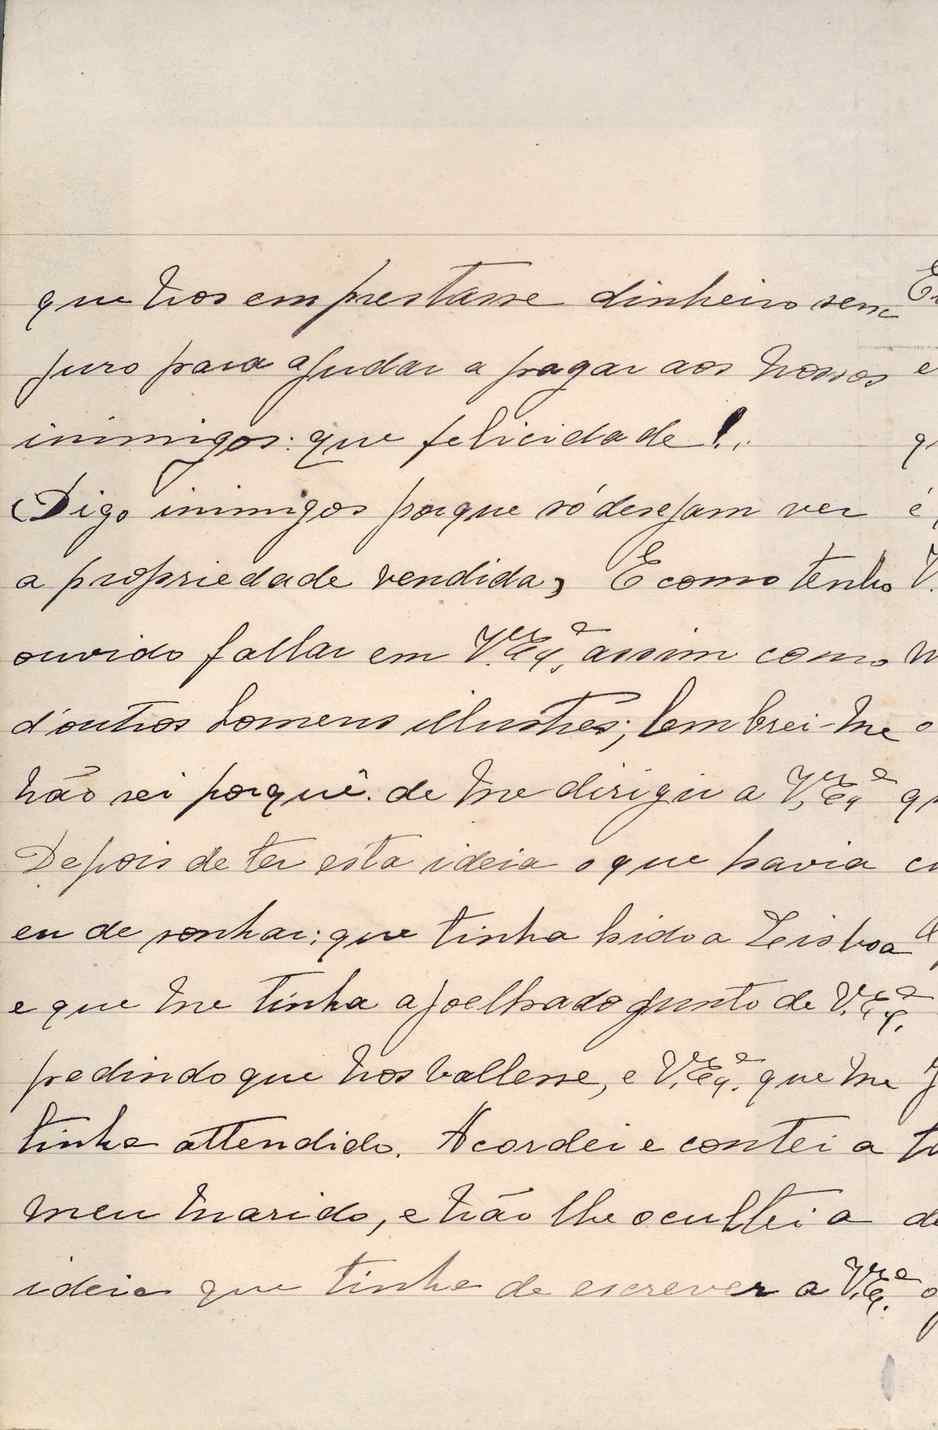 que nos emprestasse dinheiro sem
juro para ajudar a pagar aos nossos
inimigos: que felicidade!..
(Digo inimigos porque só desejam ver
a propriedade vendida) E como tenho
ouvido fallar em V. Exª, assim como
d'outros homens illustres; lembrei-me
não sei porquê. de me dirigir a V. Exª
Depois de ter esta ideia o que havia
eu de sonhar: que tinha hido a Leisboa
e que me tinha ajoelhado junto de V. Exª.
pedindo que nos vallesse, e V. Exª. que me
tinha attendido. Acordei e contei a
meu marido, e não lhe ocultei a
ideia que tinha de escrever a V. Exª.